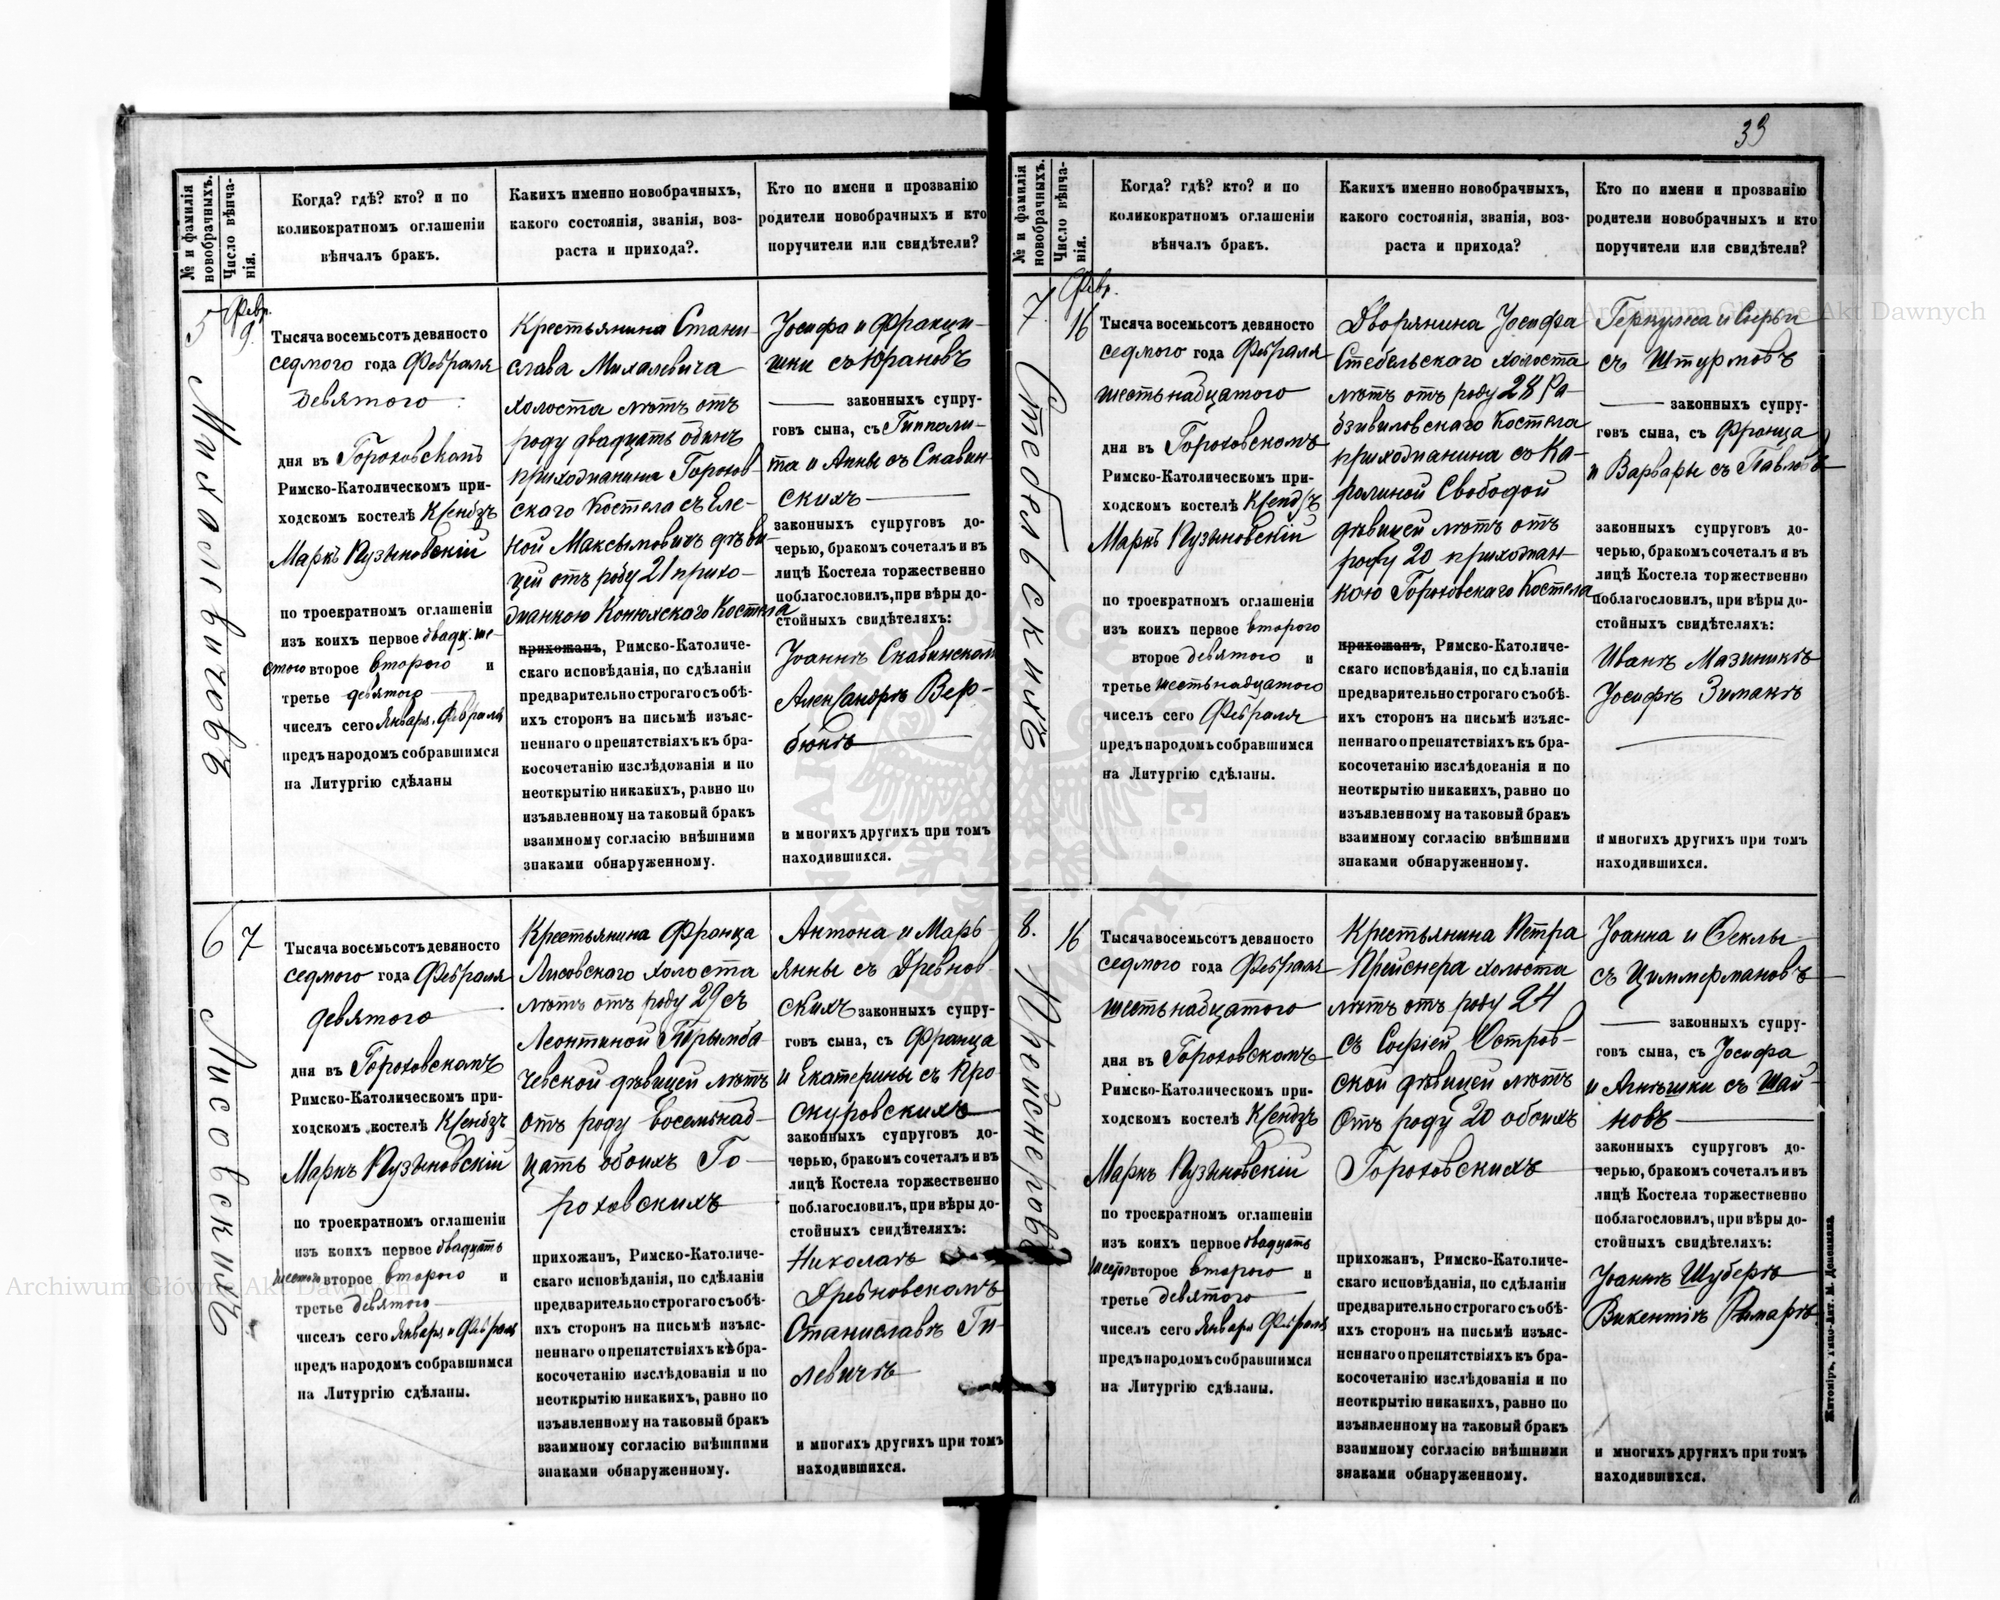 39
№ и фамилія новобрачныхъ.
Число вѣнча-
нія.
Когда? гдѣ? кто? и по
коликократномъ оглашеніи
вѣнчалъ бракъ.
Какихъ именно новобрачныхъ,
какого состоянія, званія, воз-
раста и прихода?.
Кто по имени и прозванію
родители новобрачныхъ и кто
поручители или свидѣтели?
5
Февр.
9.
Михалевичовъ
Тысяча восемьсотъ девяносто
седмого года Февраля
девятого
дня въ Гороховскомъ
Римско-Католическомъ при-
ходскомъ костелѣ Ксендзъ
Маркъ Пузыновскій
по троекратномъ оглашеніи
изъ коихъ первое двадц. ше-
стого второе второго и
третье девятого
чиселъ сего Января, Февраля
предъ народомъ собравшимся
на Литургію сдѣланы
Крестьянина Стани-
слава Михалевича
холоста лѣтъ отъ
роду двадцать одинъ
прихожанина Горохов-
скаго Костела съ Еле-
ной Максымовичъ дѣви-
цей отъ роду 21 прихо-
жанкою Конюхского Костела
прихожанъ, Римско-Католиче-
скаго исповѣданія, по сдѣланіи
предварительно строгаго съ обѣ-
ихъ сторонъ на письмѣ изъяс-
неннаго о препятствіяхъ къ бра-
косочетанію изслѣдованія и по
неоткрытію никакихъ, равно по
изъявленному на таковый бракъ
взаимному согласію внѣшними
знаками обнаруженному.
Іосифа и Францы-
шки съ Юрановъ
законныхъ супру-
говъ сына, съ Гипполи-
та и Анны съ Скавин-
скихъ
законныхъ супруговъ до-
черью, бракомъ сочеталъ и въ
лицѣ Костела торжественно
поблагословилъ, при вѣры до-
стойныхъ свидѣтеляхъ:
Іоаннѣ Скавинскомъ
Александрѣ Вер-
бюкѣ
и многихъ другихъ при томъ
находившихся.
6
7
Лисовскихъ
Тысяча восемьсотъ девяносто
седмого года Февраля
девятого
дня въ Гороховскомъ
Римско-Католическомъ при-
ходскомъ костелѣ Ксендзъ
Маркъ Пузыновскій
по троекратномъ оглашеніи
изъ коихъ первое двадцать
шестого второе второго и
третье девятого
чиселъ сего Января и Февраля
предъ народомъ собравшимся
на Литургію сдѣланы.
Крестьянина Франца
Лисовскаго холоста
лѣтъ отъ роду 29 съ
Леонтиной
чевской дѣвицей лѣтъ
отъ роду восемьнад-
цать обоихъ Го-
роховскихъ
прихожанъ, Римско-Католиче-
скаго исповѣданія, по сдѣланіи
предварительно строгаго съ обѣ-
ихъ сторонъ на письмѣ изъяс-
неннаго о препятствіяхъ къ бра-
косочетанію изслѣдованія и по
неоткрытію никакихъ, равно по
изъявленному на таковый бракъ
взаимному согласію внѣшними
знаками обнаруженному.
Антона и Марь-
янны съ Древнов-
скихъ законныхъ супру-
говъ сына, съ Франца
и Екатерины съ Про-
скуровскихъ
законныхъ супруговъ до-
черью, бракомъ сочеталъ и въ
лицѣ Костела торжественно
поблагословилъ, при вѣры до-
стойныхъ свидѣтеляхъ:
Николаѣ
Древновскомъ
Станиславѣ Ги-
левичѣ
и многихъ другихъ при томъ
находившихся.
№ и фамилія новобрачныхъ.
Число вѣнча-
нія.
Когда? гдѣ? кто? и по
коликократномъ оглашеніи
вѣнчалъ бракъ.
Какихъ именно новобрачныхъ,
какого состоянія, званія, воз-
раста и прихода?
Кто по имени и прозванію
родители новобрачныхъ и кто
поручители или свидѣтели?
7.
Февр.
16
Стебельскихъ
Тысяча восемьсотъ девяносто
седмого года Февраля
шестьнадцатого
дня въ Гороховскомъ
Римско-Католическомъ при-
ходскомъ костелѣ Ксендзъ
Маркъ Пузыновскій
по троекратномъ оглашеніи
изъ коихъ первое второго
второе девятого и
третье шестьнадцатого
чиселъ сего Февраля
предъ народомъ собравшимся
на Литургію сдѣланы.
Дворянина Іосифа
Стебельскаго холоста
лѣтъ отъ роду 28 Ра-
дзивиловскаго Костела
прихожанина съ Ка-
ролиной Свободой
дѣвицей лѣтъ отъ
роду 20 прихожан-
кою Гороховскаго Костела
прихожанъ, Римско-Католиче-
скаго исповѣданія, по сдѣланіи
предварительно строгаго съ обѣ-
ихъ сторонъ на письмѣ изъяс-
неннаго о препятствіяхъ къ бра-
косочетанію изслѣдованія и по
неоткрытію никакихъ, равно по
изъявленному на таковый бракъ
взаимному согласію внѣшними
знаками обнаруженному.
Геркулжа и
съ Штурмовъ
законныхъ супру-
говъ сына, съ Франца
и Варвары съ
законныхъ супруговъ до-
черью, бракомъ сочеталъ и въ
лицѣ Костела торжественно
поблагословилъ, при вѣры до-
стойныхъ свидѣтеляхъ:
Иванѣ Мазиникѣ
Іосифѣ Зиманѣ
и многихъ другихъ при томъ
находившихся.
8.
16
Прейснеровъ
Тысяча восемьсотъ девяносто
седмого года Февраля
шестьнадцатого
дня въ Гороховскомъ
Римско-Католическомъ при-
ходскомъ костелѣ Ксендзъ
Маркъ Пузыновскій
по троекратномъ оглашеніи
изъ коихъ первое двадцать
шестого второе второго и
третье девятого
чиселъ сего Января Февраля
предъ народомъ собравшимся
на Литургію сдѣланы.
Крестьянина Петра
Прейснера холоста
лѣтъ отъ роду 24
съ Софіей Остров-
ской дѣвицей лѣтъ
отъ роду 20 обоихъ
Гороховскихъ
прихожанъ, Римско-Католиче-
скаго исповѣданія, по сдѣланіи
предварительно строгаго съ обѣ-
ихъ сторонъ на письмѣ изъяс-
неннаго о препятствіяхъ къ бра-
косочетанію изслѣдованія и по
неоткрытію никакихъ, равно по
изъявленному на таковый бракъ
взаимному согласію внѣшними
знаками обнаруженному.
Іоанна и Феклы
съ Циммермановъ
законныхъ супру-
говъ сына, съ Іосифа
и Агнѣшки съ Шай-
новъ
законныхъ супруговъ до-
черью, бракомъ сочеталъ и въ
лицѣ Костела торжественно
поблагословилъ, при вѣры до-
стойныхъ свидѣтеляхъ:
Іоаннѣ Шубертѣ
Викентіѣ Римарѣ
и многихъ другихъ при томъ
находившихся.
Житоміръ, Типо-Лит. М. Дененмана.
Archiwum Główne Akt Dawnych
Archiwum Główne Akt Dawnych
ARCHIWUM GŁÓWNE AKT DAWNYCH